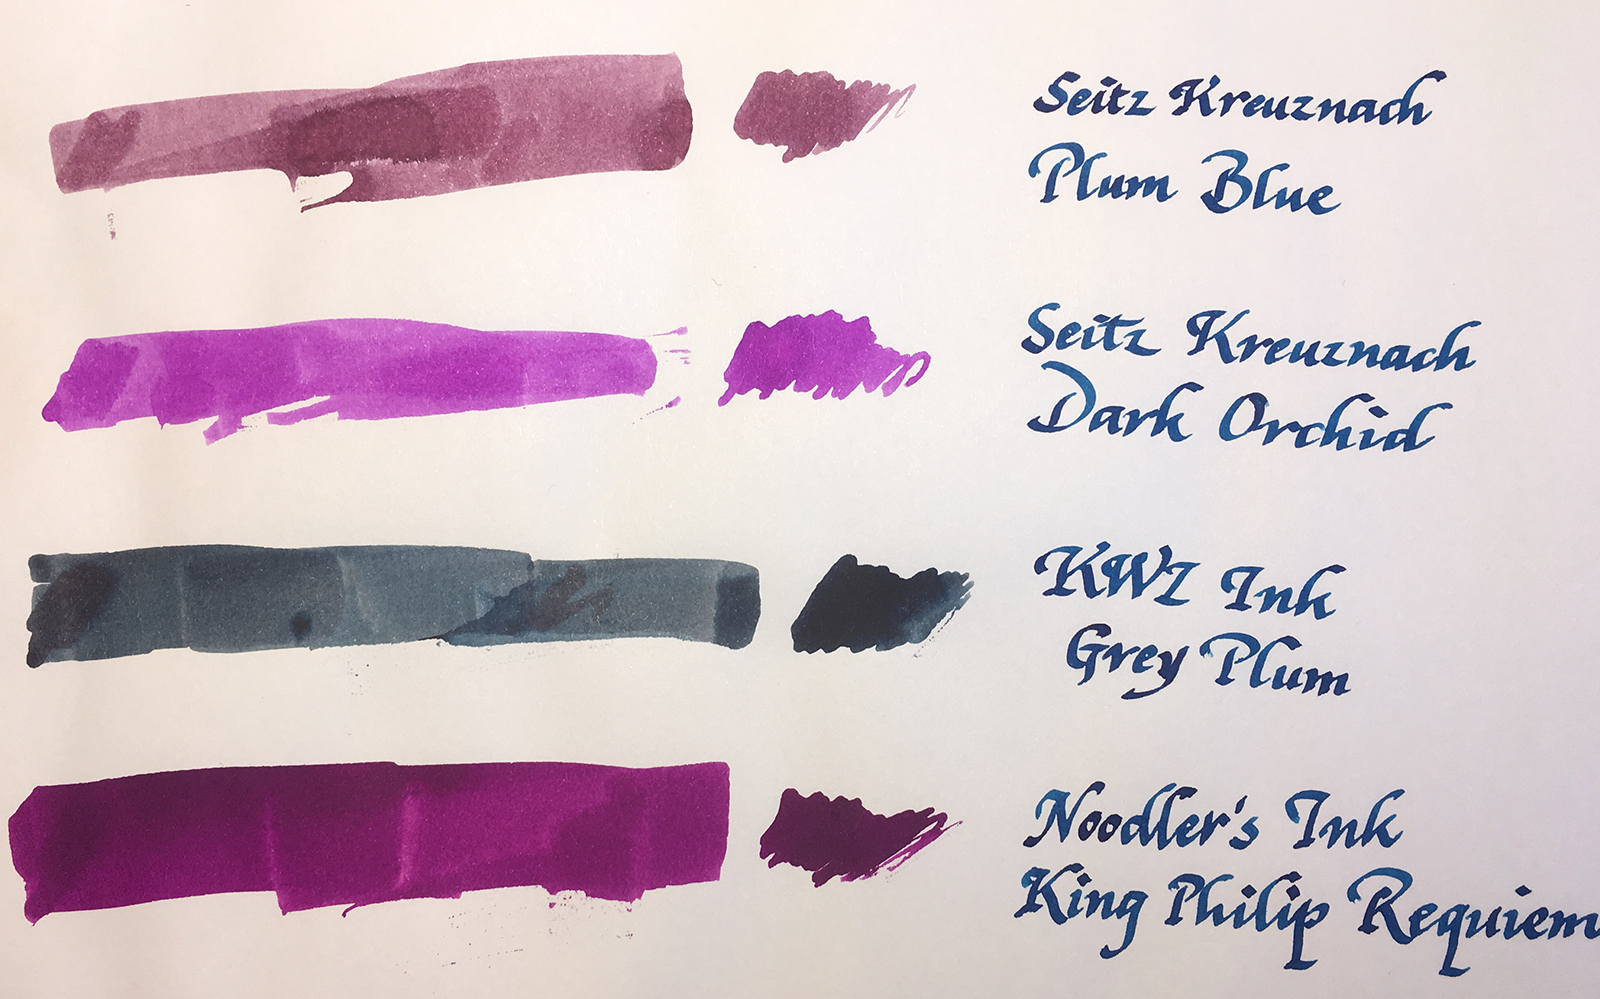 Seitz Kreuznach
Plum Blue
Seitz Kreuznach
Dark Orchid
KWZ Ink
Grey Plum
Noodler's Ink
King Philip Requiem